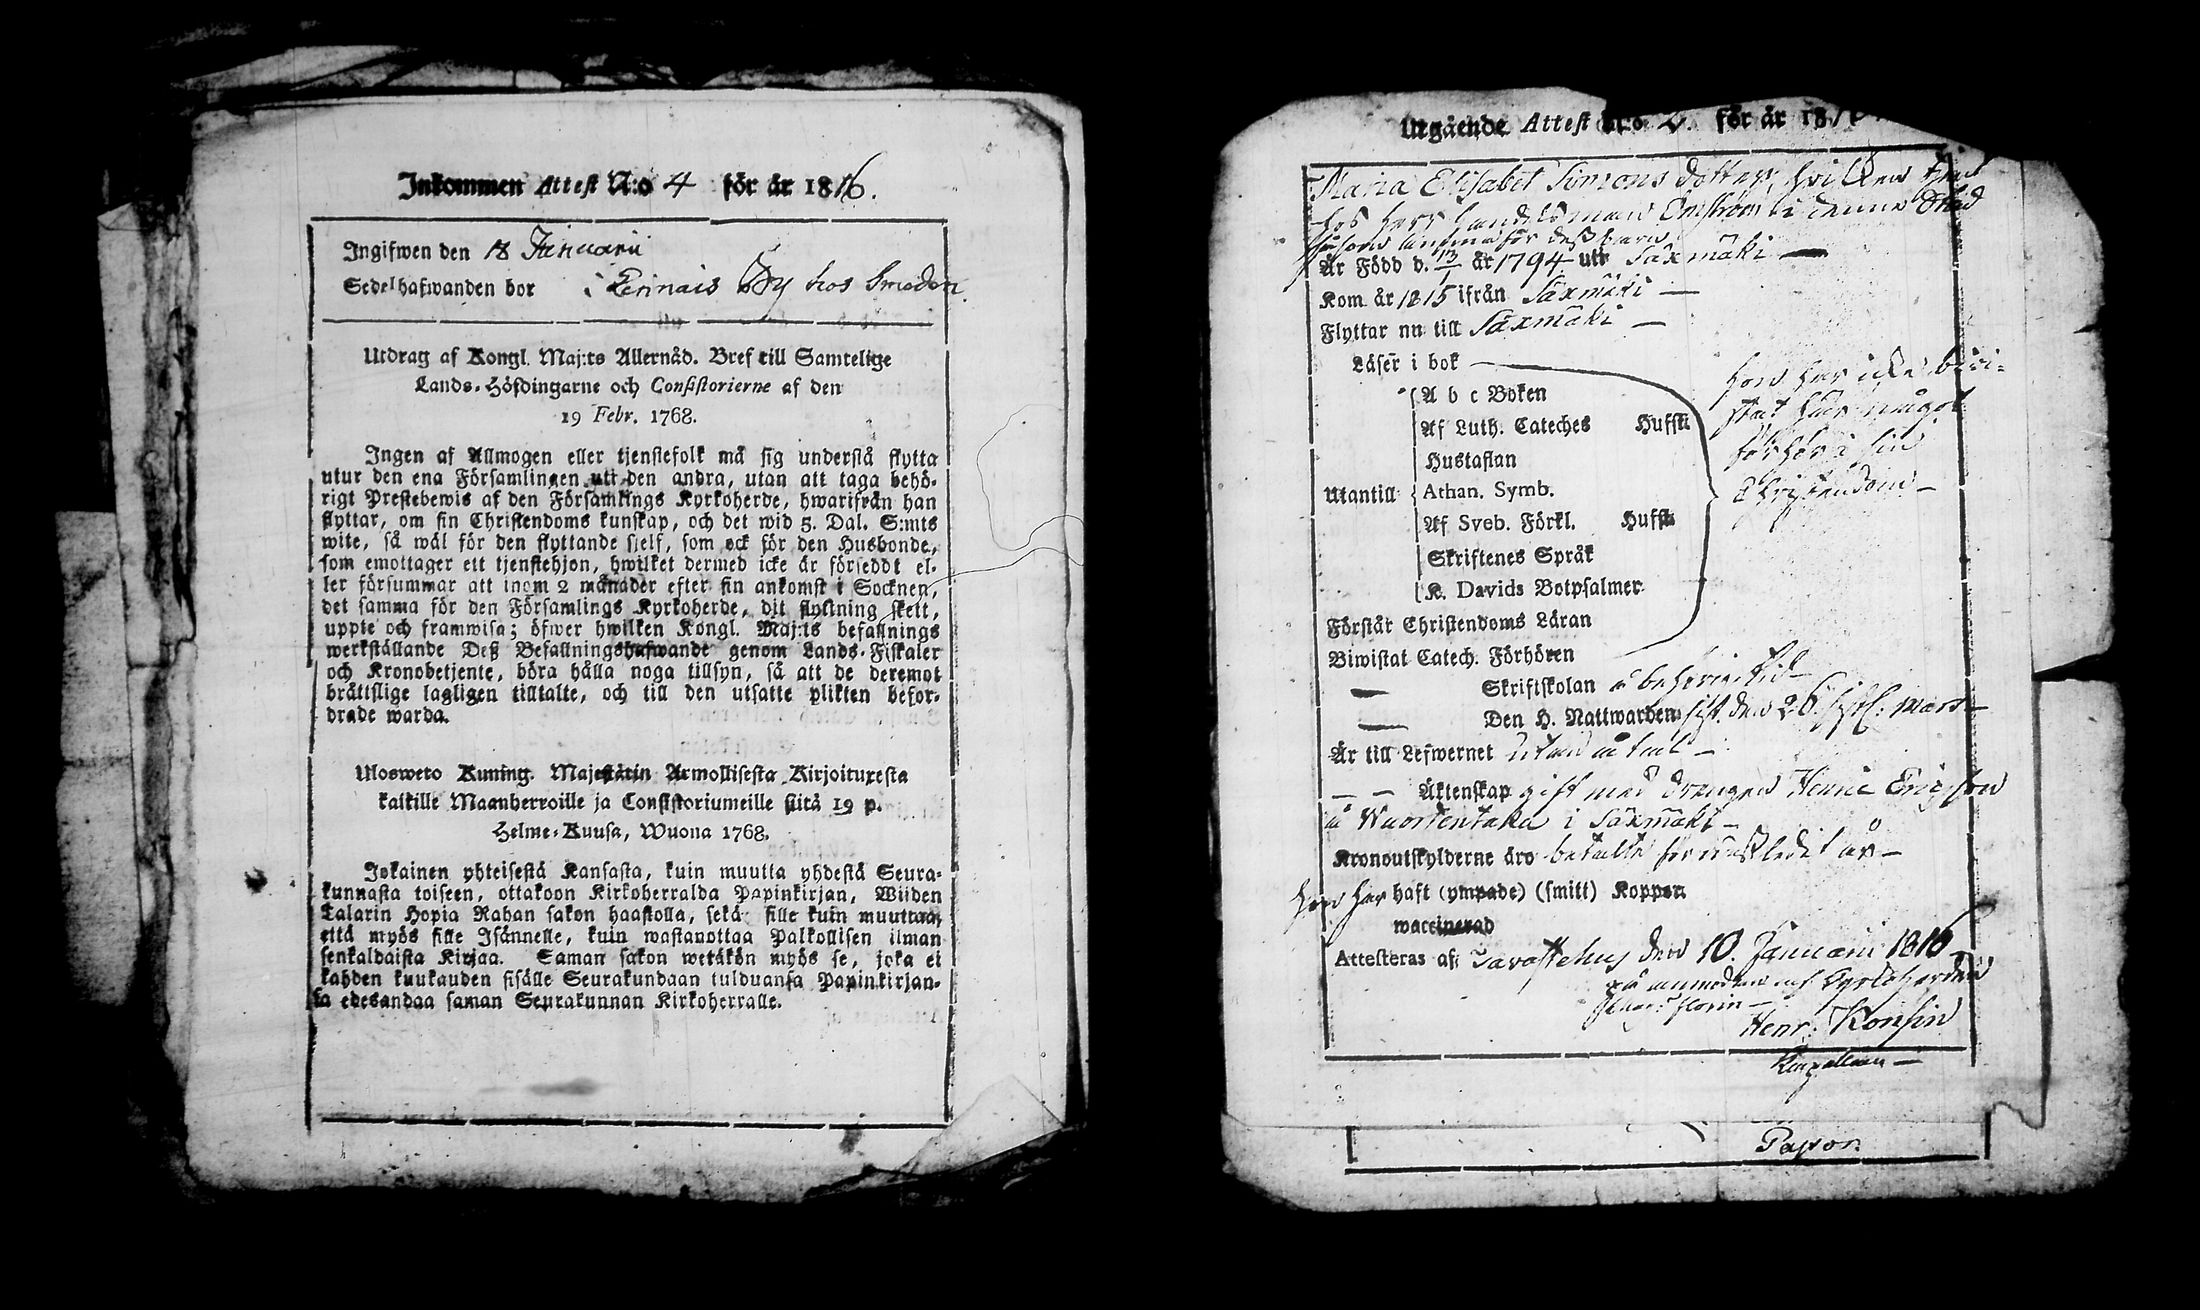 Inkommen Attest N:o 4 för år 1816.
Ingifwen den 18 Januarii
Sedelhafwanden bor i Lerinais By hos Smeden
Utdrag af Kongl. Maj:ts Allernåd. Bref till Samtelige
Lands-Höfdingarne och Consistorierne af den
19 Febr. 1768.
Ingen af Allmogen eller tjenstefolk må sig understå flytta
utur den ena Församlingen uti den andra, utan att taga behö-
rigt Prestebewis af den Församlings Kyrkoherde, hwarifrån han
flyttar, om sin Christendoms kunskap, och det wid 5. Dal. S:mts
wite, så wäl för den flyttande sjelf, som ock för den Husbonde,
som emottager ett tjenstehjon, hwilket dermed icke är förseddt el-
ler försummar att inom 2 månader efter sin ankomst i Socknen,
det samma för den Församlings Kyrkoherde, dit flyttning skett,
uppte och framwisa; öfwer hwilken Kongl. Maj:ts befallnings
werkställande Deß Befallningshafwande genom Lands-Fiskaler
och Kronobetjente, böra hålla noga tillsyn, så att de deremot
bråttslige lagligen tilltalte, och till den utsatte plikten befor-
drade warda.
Ulosweto Kuning. Majestätin Armollisesta Kirjoituxesta
kaikille Maanherroille ja Consistoriumeille siitä 19 p.
Helme-Kuusa, Wuona 1768.
Jokainen yhteisestä Kansasta, kuin muutta yhdestä Seura-
kunnasta toiseen, ottakoon Kirkoherralda Papinkirjan, Wiiden
Talarin Hopia Rahan sakon haastolla, sekä sille kuin muuttaa,
että myös sille Isännelle, kuin wastanottaa Palkollisen ilman
senkaldaista Kirjaa. Saman sakon wetäkön myös se, joka ei
kahden kuukauden sisälle Seurakundaan tulduansa Papinkirjan-
sa edesandaa saman Seurakunnan Kirkoherralle.
Utgående Attest N:o 2. för år 181
Maria Elisabet Simons dotter, hvilken tjent
hos herr handelsman i denna Stad
såsom amma för deß barn
Är Född d. 13/1 år 1794 uti Säxmäki
Kom år 1815 ifrån Säxmäki
Flyttar nu till Säxmäki
Läser i bok
A b c Boken
Af Luth. Cateches Hufst.
Hustaflan
Utantill Athan. Symb.
Af Sveb. Förkl. Hufst.
Skriftenes Språk
K. Davids Botpsalmer
Förstår Christendoms Läran
Biwistat Catech. Förhören
hon har icke bivi-
stat här något
förhör i sin
Christendom
Skriftskolan å behörig tid
Den H. Nattwarden sist den 26 sistl. Mars
Är till Lefwernet utan åtal
Äktenskap gift med drengen Henric Ericsson
å Wuortentaka i Säxmäki
Kronoutskylderne äro betalta för nästledit år
hon har haft (ympade) (smitt) Koppor
waccinerad
Attesteras af: Tavastehus den 10. Januarii 1816
på anmodan af Kyrkoherden
Florin
Henr: Konsin
Kapellan
Pastor.